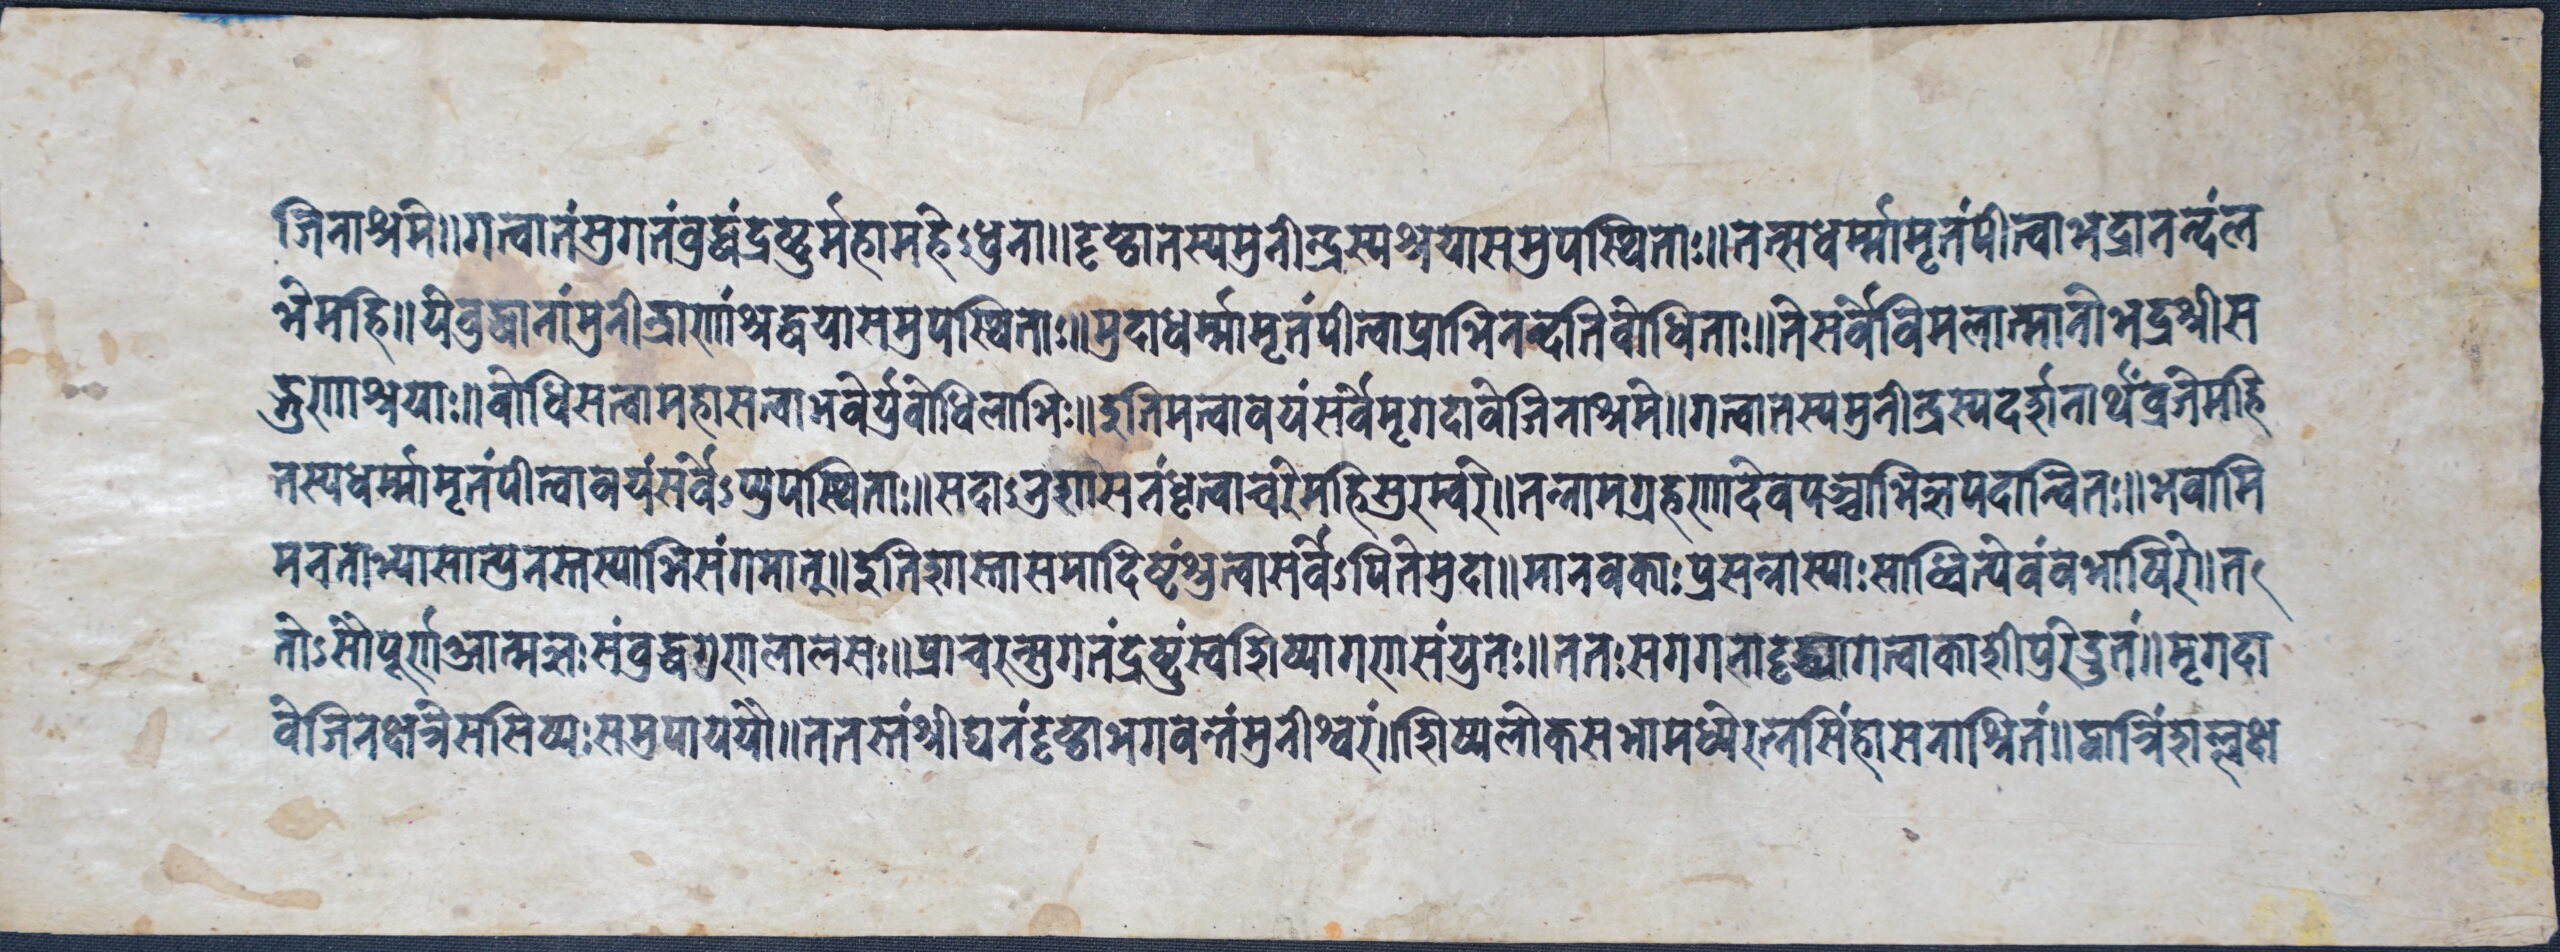 जिनाश्रमे॥गत्वातंसुगतंबुद्धंद्रष्टुर्महामहेऽधुना॥दृष्ट्वातस्यमुनीन्द्रस्यश्रयासमुपस्थिताः॥तत्सधर्म्मामृतंपीत्वाभद्रानन्दंल
भेमहि॥येबुद्धानांमुनीद्राणांश्रद्धयासमुपस्थिताः॥मुदाधर्म्मामृतंपीत्वाप्राभिनन्दतिबोधिताः॥तेसर्वेविमलात्मानोभद्रश्रीस
द्गुणाश्रयाः॥बोधिसत्वामहासत्वाभवेर्युबोधिलाभिः॥इतिमत्वावयंसर्वेमृगदावेजिनाश्रमे॥गत्वातस्यमुनीन्द्रस्यदर्शनार्थंव्रजेमहि
तस्यधर्म्मामृतंपीत्वावयंसर्वेऽप्युपस्थिताः॥सदाऽनुशासनंधृत्वाचरेमहिसुरम्वरे॥तन्नामग्रहणादेवपञ्चाभिज्ञपदान्वितः॥भवामि
मनताभ्यासात्पुनस्तस्याभिसंगमात्॥इतिशास्तासमादिष्टंश्रुत्वासर्वेऽपितेमुदा॥मानवकाःप्रसन्नास्याःसाध्वित्येवंवभाषिरे॥त
तोऽसौपूर्णआत्मज्ञःसंवुद्धगुणलालसः॥प्राचरत्सुगतंद्रष्टुंस्वशिष्यागणसंयुतः॥ततःसगगनादृद्ध्यागत्वाकाशीपुरेद्रुतं॥मृगदा
वेजिनक्षत्रेससिष्यःसमुपाययौ॥ततस्तंश्रीघनंदृष्ट्वाभगवन्तंमुनीश्वरं॥शिष्यलोकसभामध्येरत्नसिंहासनाश्रितं॥द्वात्रिंशल्लक्ष